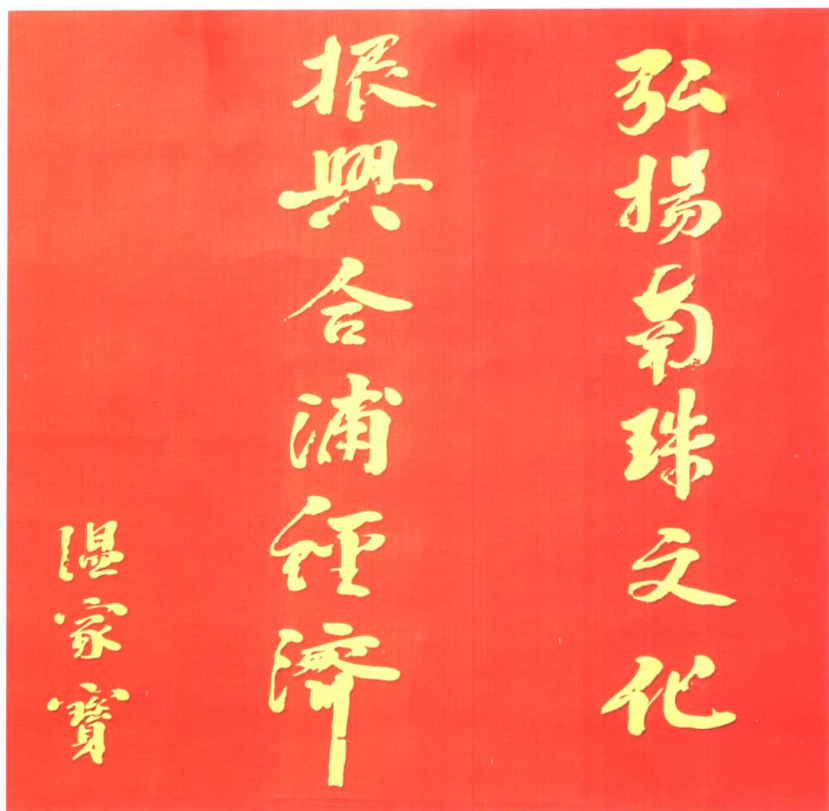 弘揚南珠文化
振興合浦經濟
温家寳